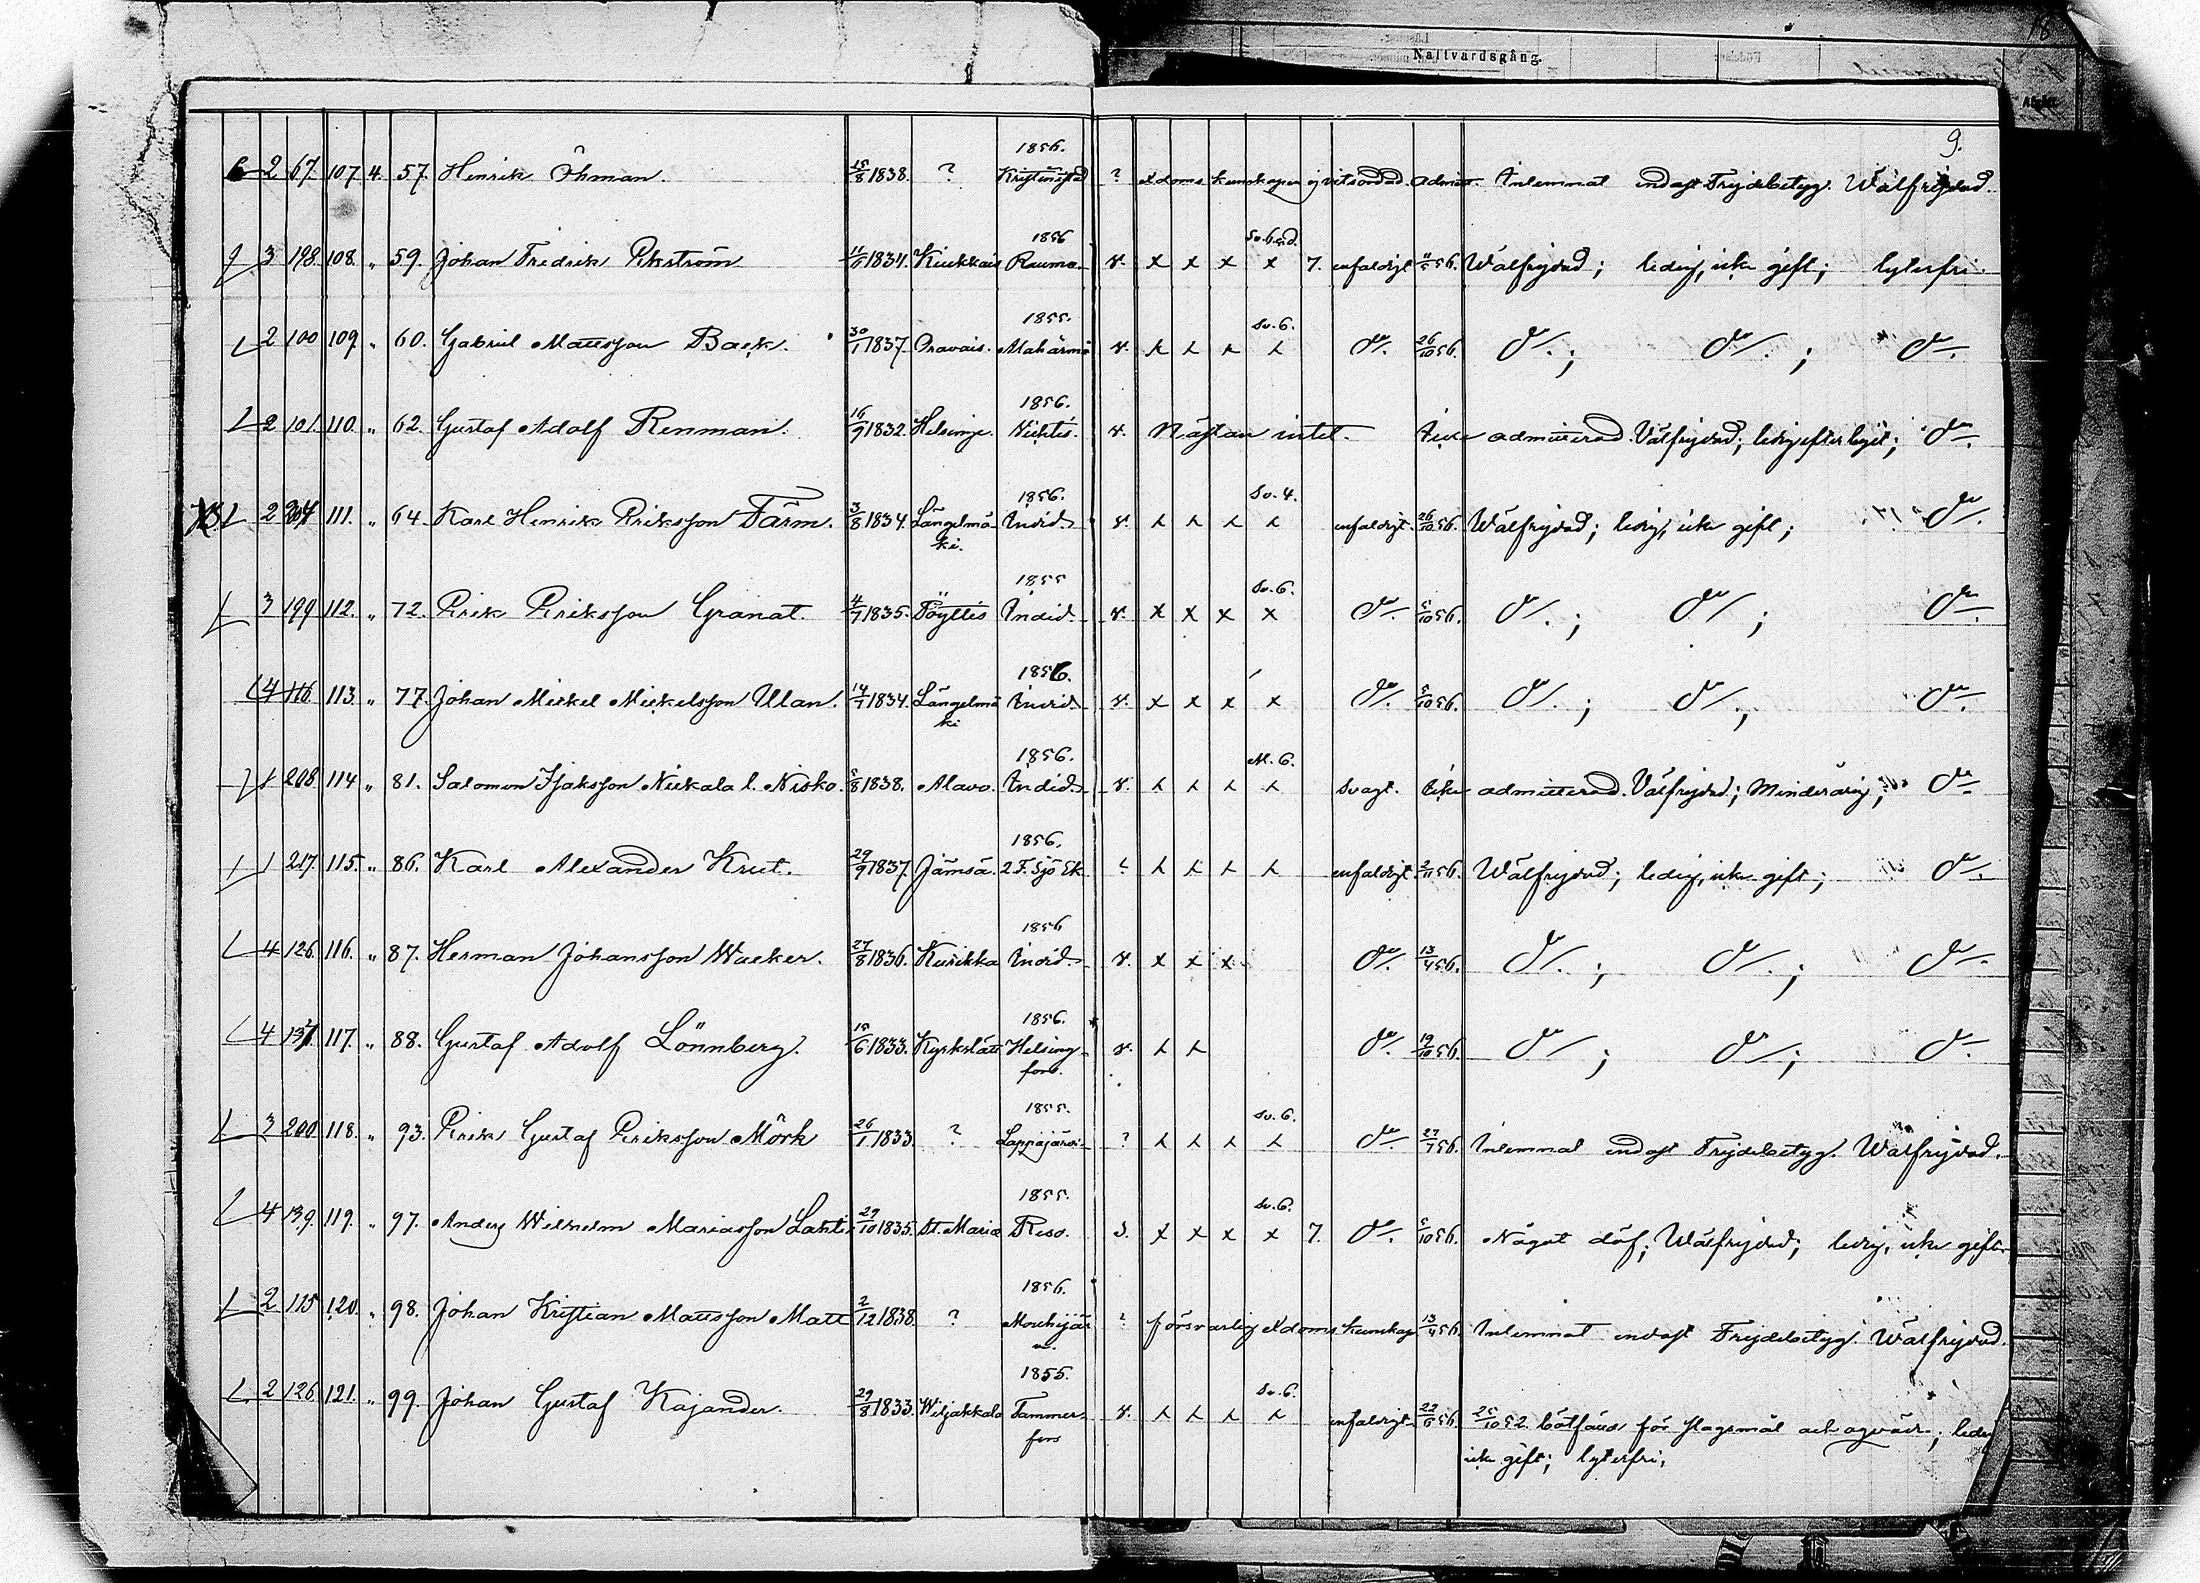 Nattvardsgång.
9.
6 2 67. 107. 4. 57. Henrik Öhman. 15/8 1838. ? 1856. Kristinestad ? Xdoms kunskapen ej vitsordad. Admitt. Inlemnat endast Frejdebetyg. Wälfrejdad.
3 198. 108. " 59. Johan Fredrik Ekström 1834. Kiukkais 1856 Raumo. v. x x x x 7. enfaldigt 56. Wälfrejdad; ledig, icke gift; lyterfri.
2 100 109 " 60. Gabriel Mattsson Back. 30/1 1837. Oravais. 1855. Alahärmä v. x x x Sv. 6. x do. 26/10 56. do.; do.; do.
2 101. 110. " 62. Gustaf Adolf Renman. 16/9 1832. Helsinge. 1856. Wichtis. v. Nästan intet. Icke admitterad. Välfrejdad; ledig efter hvad; do.
2 111. " 64. Karl Henrik Eriksson Färm. 3/8 1834. Längelmäki. 1856. Indid. v. x x x Sv. 4. x enfaldigt. 26/10 56. Wälfrejdad; ledig, icke gift; do.
3 199 112. " 72. Erik Eriksson Granat. 4/7 1835. Pöyttis 1855 Indid. v. x x x Sv. 6. x do. 5/10 56. do.; do.; do.
4 116. 113. " 77. Johan Mickel Mickelsson Ulan. 14/7 1834. Längelmäki 1856. Indid. v. x x x x do. 5/10 56. do.; do.; do.
1 208 114 " 81. Salomon Isaksson Nickala l. Nisko. 5/8 1838. Alavo. 1856. Indid. v. x x x M. 6. x svagt. Icke admitterad. Välfrejdad; Minderårig; do.
1 217. 115. " 86. Karl Alexander Krut. 29/9 1837. Jämsä. 1856. 2 F. Sjö Ek. ? x x x x enfaldigt. 2/11 56. Wälfrejdad; ledig, icke gift; do.
4 126. 116. " 87. Herman Johansson Wacker. 27/8 1836. Kurikka 1856 Indid. v. x x x do. 13/4 56. do.; do.; do.
4 137. 117. " 88. Gustaf Adolf Lönnberg. 15/6 1833. Kyrkslätt 1856. Helsingfors. v. x x do. 19/10 56. do.; do.; do.
3 200 118. " 93. Erik Gustaf Eriksson Mörk 26/1 1833. ? 1855. Lappajärvi ? x x x Sv. 6. x do. 27/7 56. Inlemnat endast Frejdebetyg. Wälfrejdad.
4 139. 119. " 97. Anders Wilhelm Mariasson Lahti 29/10 1835. St. Marie 1855. Reso. s. x x x Sv. 6. x 7. do. 5/10 56. Något döf; Wälfrejdad; ledig, icke gift.
2 115 120. " 98. Johan Kristian Mattsson Matt 2/12 1838. ? 1856. Mouhijärvi ? försvarlig Xdoms kunskap 13/4 56. Inlemnat endast Frejdebetyg. Wälfrejdad.
2 126. 121. " 99. Johan Gustaf Kajander. 29/8 1833. Wiljakkala 1855. Tammerfors v. x x x Sv. 6. x enfaldigt. 22/6 56. 25/10 52 botfäld för slagsmål och oqväde; ledig
icke gift; lyterfri;